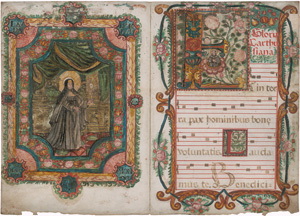 Gloria
Et in ter
ra pax hominibus bone
voluntatis Lauda
mus te. Benedici